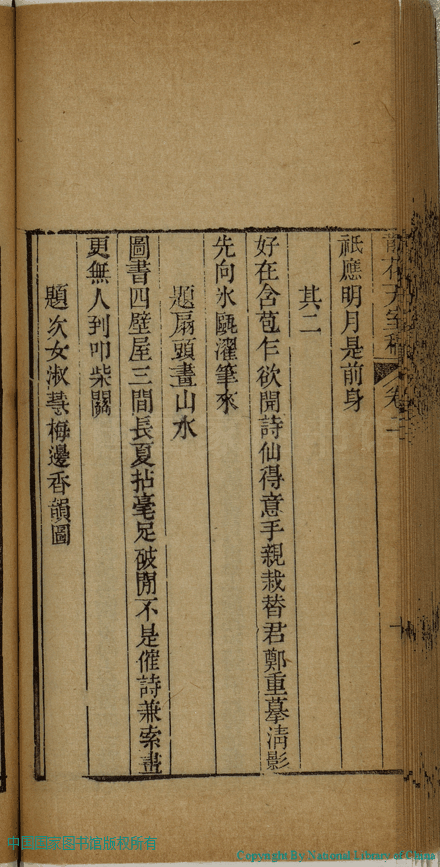 祇應明月是前身
其二
好在含苞乍欲開詩仙得意手親栽替君鄭重摹淸影
先向氷甌濯筆來
題扇頭畫山水
圖書四壁屋三間長夏拈毫足破閒不是催詩兼索畫
更無人到叩柴關
題次女淑梅邊香韻圖
中国国家图书馆版权所有
Copyright By National Library of China